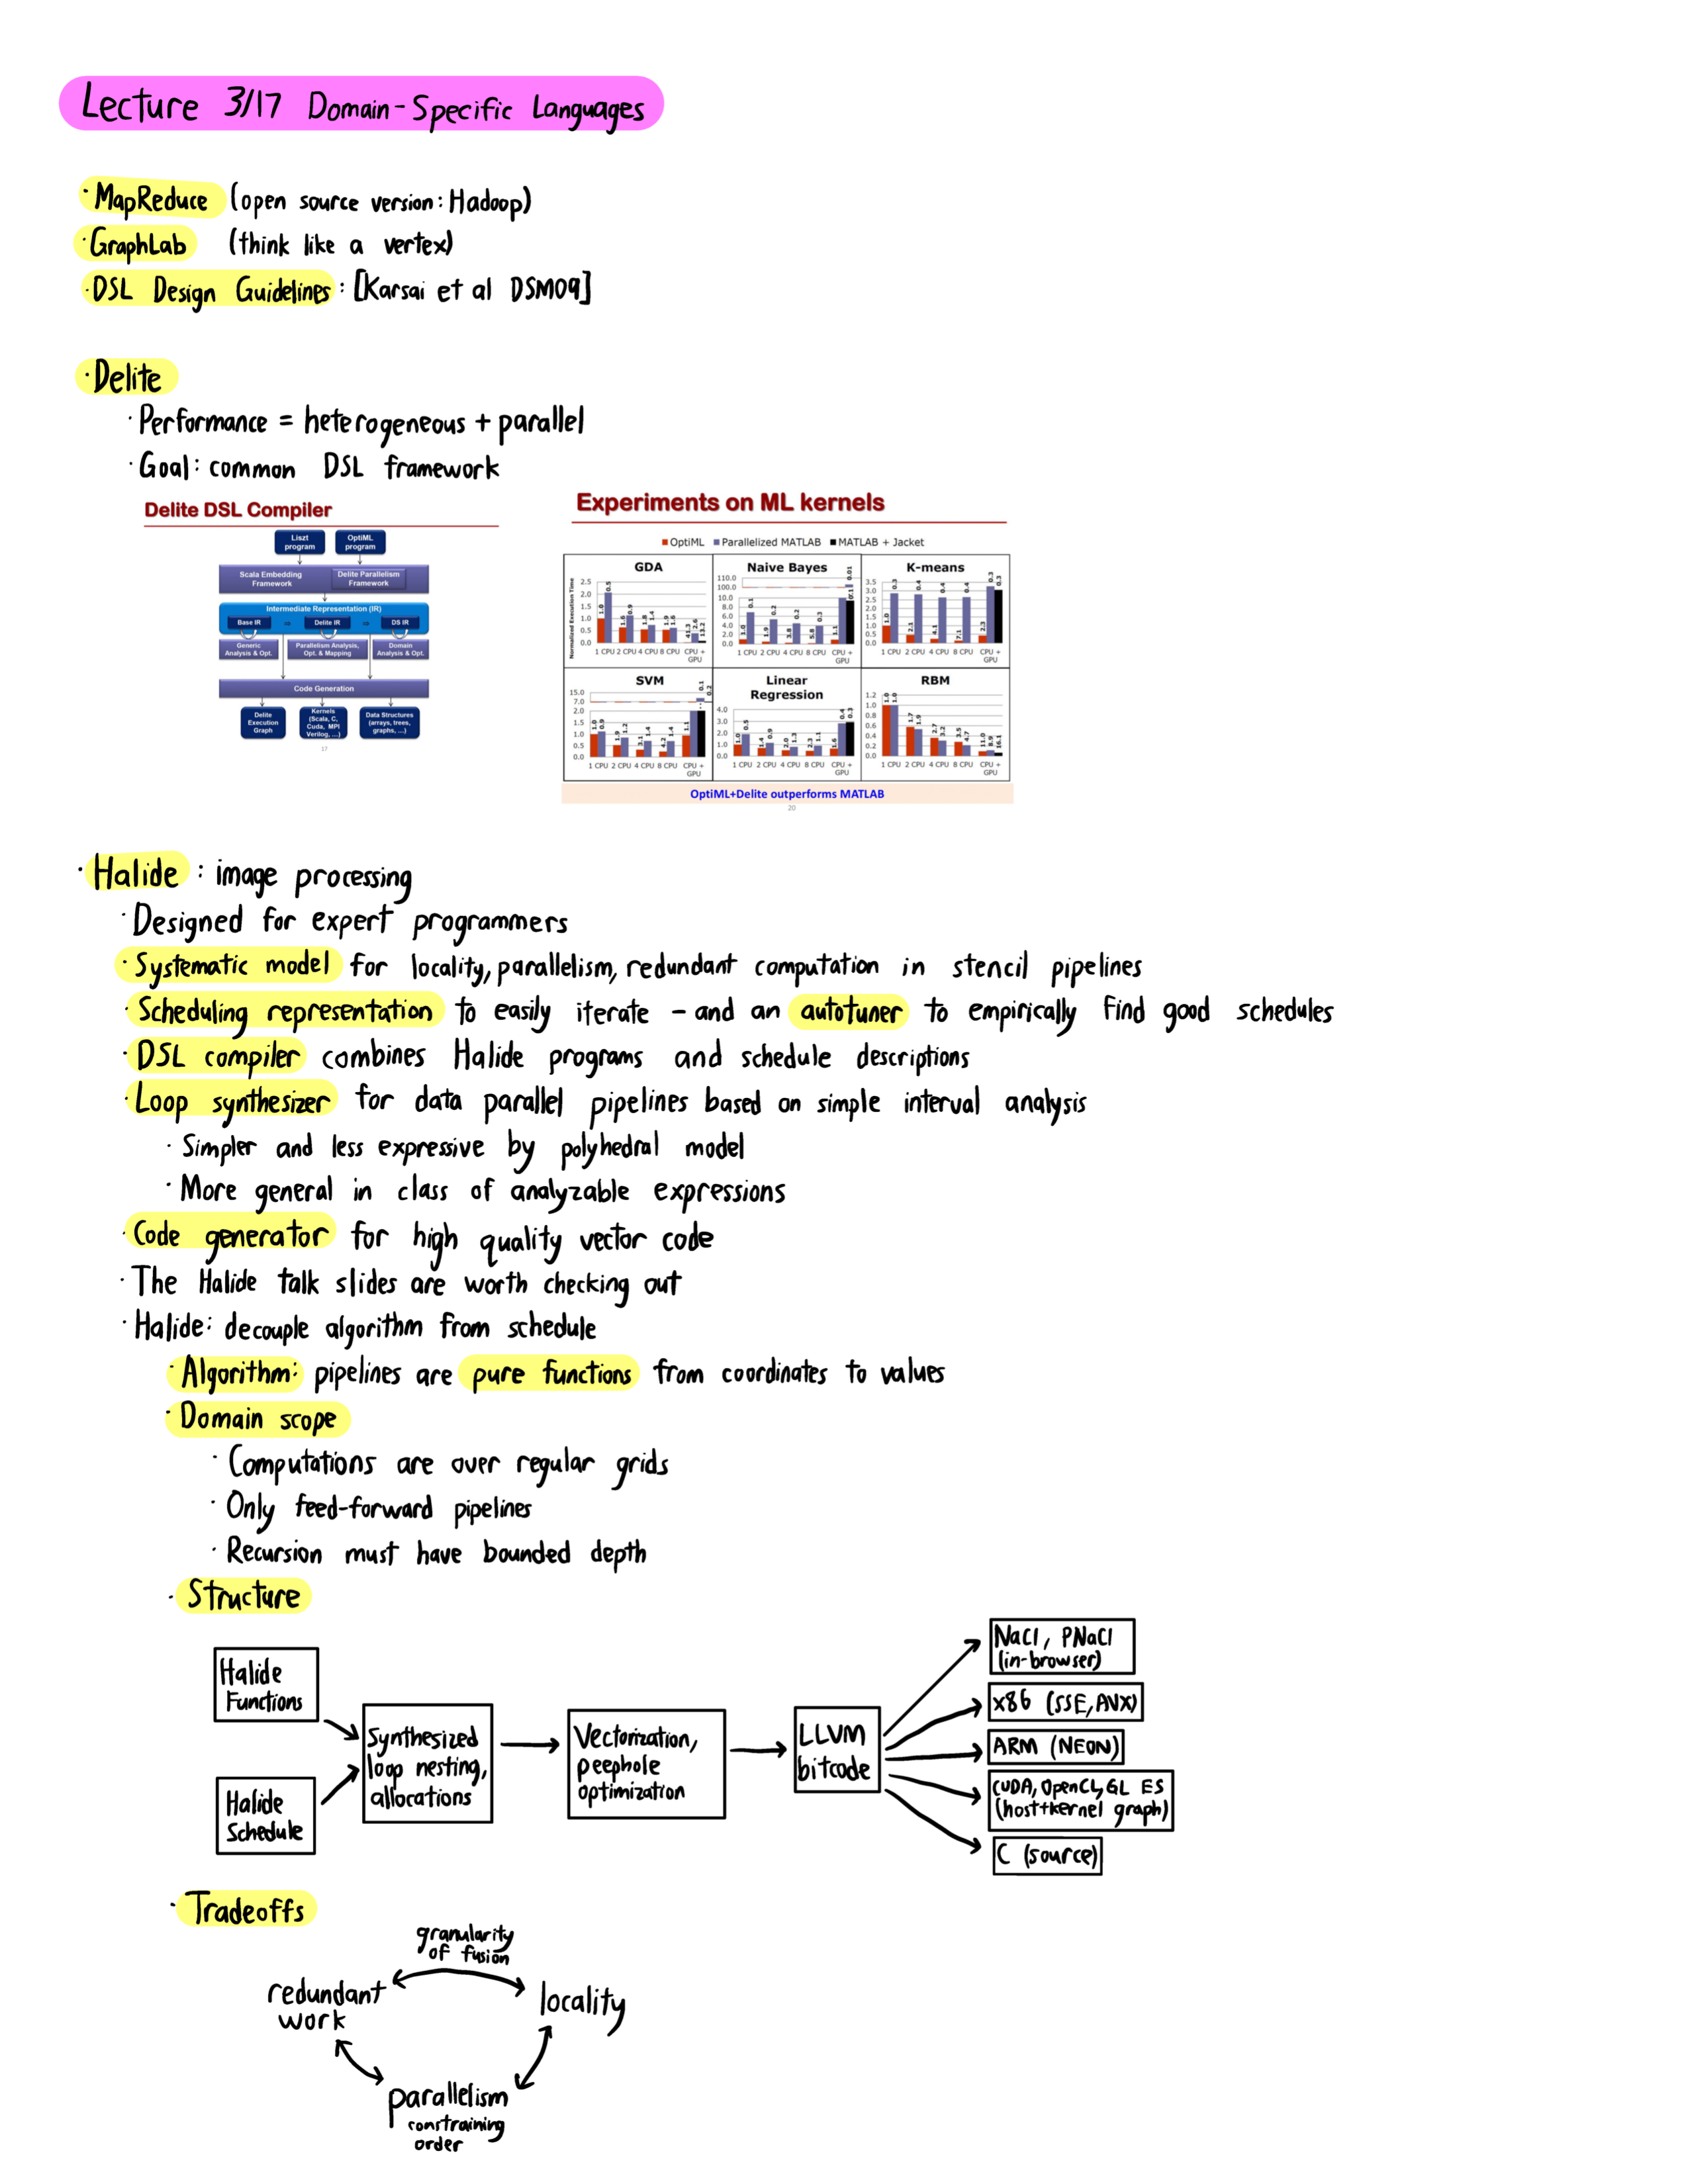 Lecture 3/17 Domain-Specific Languages
· MapReduce (open source version: Hadoop)
· GraphLab (think like a vertex)
· DSL Design Guidelines: [Karsai et al DSM09]
· Delite
· Performance = heterogeneous + parallel
· Goal: common DSL framework
Delite DSL Compiler
Liszt program
OptiML program
Scala Embedding Framework
Delite Parallelism Framework
Intermediate Representation (IR)
Base IR ⇒ Delite IR ⇒ DS IR
Generic Analysis & Opt.
Parallelism Analysis, Opt. & Mapping
Domain Analysis & Opt.
Code Generation
Delite Execution Graph
Kernels (Scala, C, Cuda, MPI Verilog, ...)
Data Structures (arrays, trees, graphs, ...)
17
Experiments on ML kernels
OptiML Parallelized MATLAB MATLAB + Jacket
Normalized Execution Time
GDA
2.5
2.0
1.5
1.0
0.5
0.0
1.0 0.5 1.6 0.9 1.8 1.4 1.9 1.6 41.3 2.6 13.2
1 CPU 2 CPU 4 CPU 8 CPU CPU + GPU
Naive Bayes
110.0
100.0
10.0
8.0
6.0
4.0
2.0
0.0
1.0 0.1 1.9 0.2 3.8 0.2 5.8 0.3 1.1 0.1 0.01
1 CPU 2 CPU 4 CPU 8 CPU CPU + GPU
K-means
3.5
3.0
2.5
2.0
1.5
1.0
0.5
0.0
1.0 0.3 2.1 0.4 4.1 0.4 7.1 0.4 2.3 0.3 0.3
1 CPU 2 CPU 4 CPU 8 CPU CPU + GPU
SVM
15.0
7.0
2.0
1.5
1.0
0.5
0.0
1.0 0.9 1.9 1.2 3.1 1.4 4.2 1.4 1.1 0.1 0.2
1 CPU 2 CPU 4 CPU 8 CPU CPU + GPU
Linear Regression
4.0
3.0
2.0
1.0
0.0
1.0 0.5 1.4 0.9 2.0 1.3 2.3 1.1 1.6 0.4 0.3
1 CPU 2 CPU 4 CPU 8 CPU CPU + GPU
RBM
1.2
1.0
0.8
0.6
0.4
0.2
0.0
1.0 1.0 1.7 1.9 2.7 3.2 3.5 4.7 11.0 8.9 16.1
1 CPU 2 CPU 4 CPU 8 CPU CPU + GPU
OptiML+Delite outperforms MATLAB
20
· Halide: image processing
· Designed for expert programmers
· Systematic model for locality, parallelism, redundant computation in stencil pipelines
· Scheduling representation to easily iterate - and an autotuner to empirically find good schedules
· DSL compiler combines Halide programs and schedule descriptions
· Loop synthesizer for data parallel pipelines based on simple interval analysis
· Simpler and less expressive by polyhedral model
· More general in class of analyzable expressions
· Code generator for high quality vector code
· The Halide talk slides are worth checking out
· Halide: decouple algorithm from schedule
· Algorithm: pipelines are pure functions from coordinates to values
· Domain scope
· Computations are over regular grids
· Only feed-forward pipelines
· Recursion must have bounded depth
· Structure
Halide
Functions
Halide
Schedule
Synthesized
loop nesting,
allocations
Vectorization,
peephole
optimization
LLVM
bitcode
NaCl, PNaCl
(in-browser)
x86 (SSE, AVX)
ARM (NEON)
CUDA, OpenCL, GL ES
(host+kernel graph)
C (source)
· Tradeoffs
granularity
of fusion
redundant
work
locality
parallelism
constraining
order